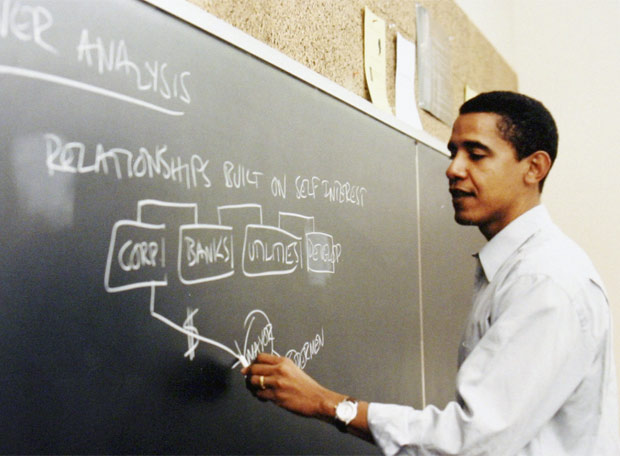 ER ANALYSIS
RELATIONSHIPS BUILT ON SELF INTEREST
CORP BANKS UTILITIES DEVELOP
$
MAYOR